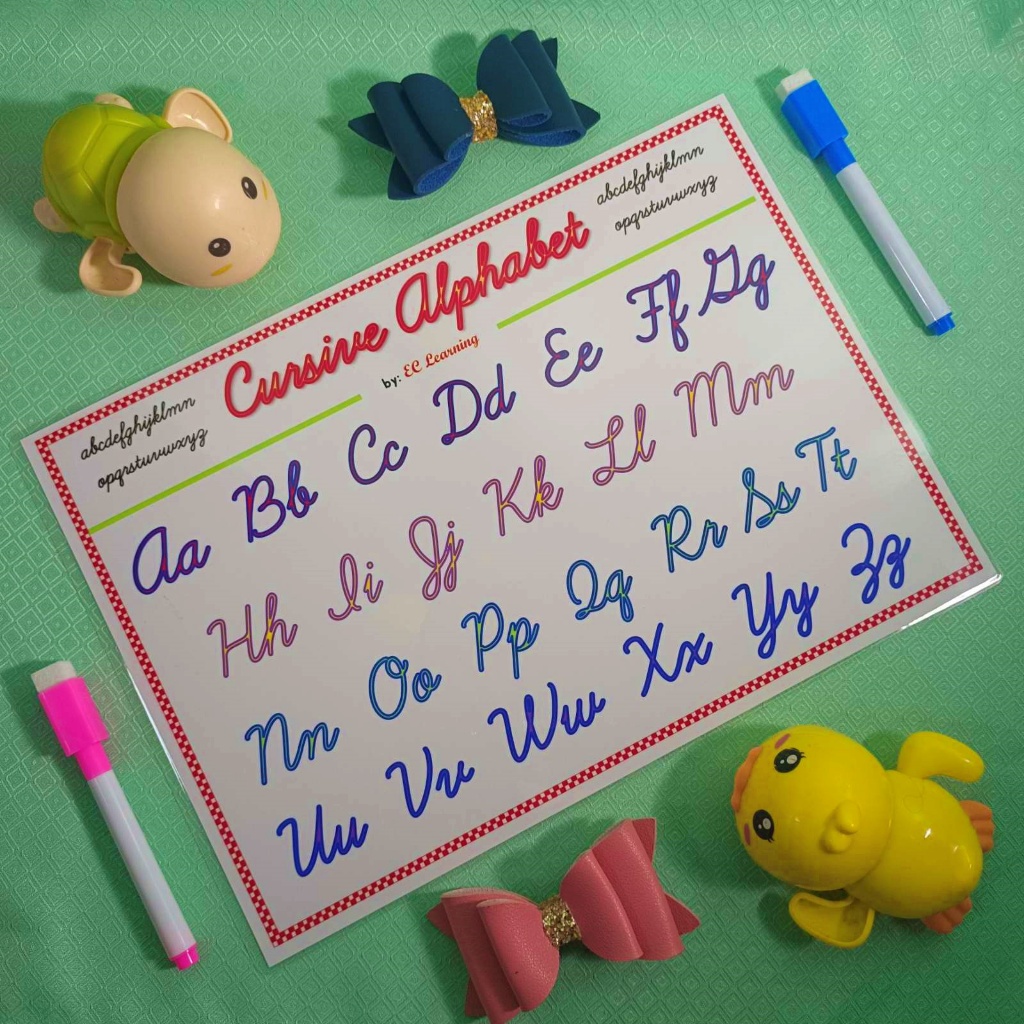 Cursive Alphabet
by: EC Learning
abcdefghijklmn
opqrstuvwxyz
abcdefghijklmn
opqrstuvwxyz
Aa Bb Cc Dd Ee Ff Gg
Hh Ii Jj Kk Ll Mm
Nn Oo Pp Qq Rr Ss Tt
Uu Vv Ww Xx Yy Zz